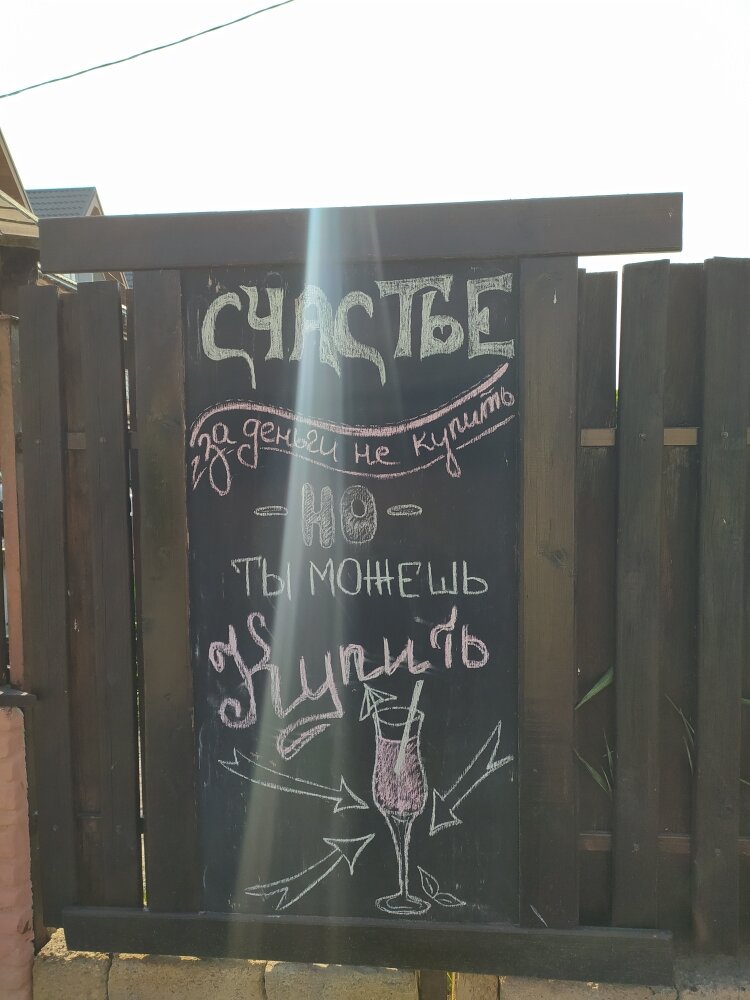 СЧАСТЬЕ
за деньги не купить
-НО-
ТЫ МОЖЕШЬ
Купить